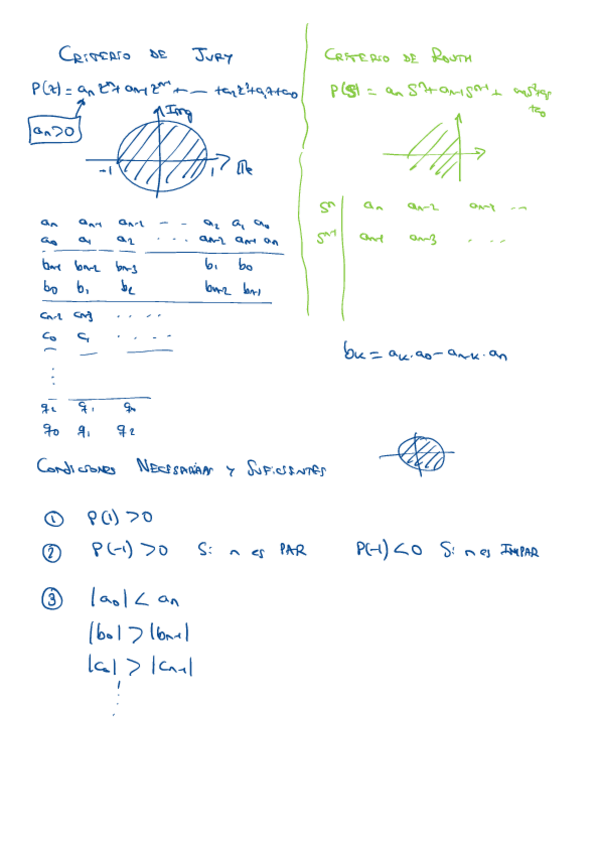 CRITERIO DE JURY
P(z) = aₙ zⁿ + aₙ₋₁ zⁿ⁻¹ + --- + a₂ z² + a₁ z + a₀
aₙ > 0
Img
-1
1
Re
aₙ aₙ₋₁ aₙ₋₂ - - - a₂ a₁ a₀
a₀ a₁ a₂ . . . aₙ₋₂ aₙ₋₁ aₙ
bₙ₋₁ bₙ₋₂ bₙ₋₃ b₁ b₀
b₀ b₁ b₂ bₙ₋₂ bₙ₋₁
cₙ₋₂ cₙ₋₃ . . . .
c₀ c₁ . . . . .
q₂ q₁ q₀
q₀ q₁ q₂
CRITERIO DE ROUTH
P(s) = aₙ sⁿ + aₙ₋₁ sⁿ⁻¹ +
+ a₀
sⁿ aₙ aₙ₋₂ aₙ₋₄ ...
sⁿ⁻¹ aₙ₋₁ aₙ₋₃ . . . .
bₖ = aₖ · a₀ - aₙ₋ₖ · aₙ
CONDICIONES NECESARIAS Y SUFICIENTES
① P(1) > 0
② P(-1) > 0 Si n es PAR P(-1) < 0 Si n es IMPAR
③ |a₀| < aₙ
|b₀| > |bₙ₋₁|
|c₀| > |cₙ₋₁|